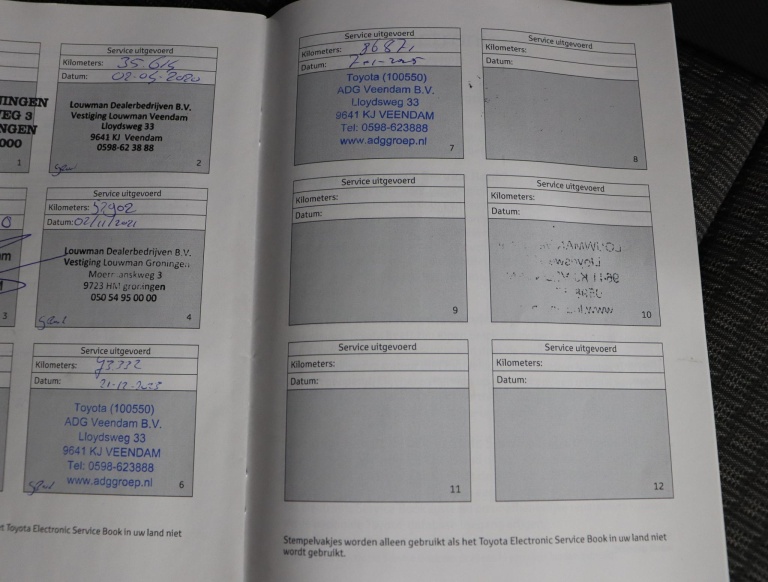 NINGEN
EG 3
NGEN
000
1
Service uitgevoerd
Kilometers: 35.614
Datum: 02-05-2020
Louwman Dealerbedrijven B.V.
Vestiging Louwman Veendam
Lloydsweg 33
9641 KJ Veendam
0598-62 38 88
2
3
Service uitgevoerd
Kilometers: 52902
Datum: 02/11/2021
Louwman Dealerbedrijven B.V.
Vestiging Louwman Groningen
9723 HM groningen
050 54 95 00 00
4
Service uitgevoerd
Kilometers: 73332
Datum: 21-12-2023
Toyota (100550)
ADG Veendam B.V.
Lloydsweg 33
9641 KJ VEENDAM
Tel: 0598-623888
www.adggroep.nl
6
et Toyota Electronic Service Book in uw land niet
Service uitgevoerd
Kilometers: 86871
Datum:
Toyota (100550)
ADG Veendam B.V.
Lloydsweg 33
9641 KJ VEENDAM
Tel: 0598-623888
www.adggroep.nl
7
Service uitgevoerd
Kilometers:
Datum:
8
Service uitgevoerd
Kilometers:
Datum:
9
Service uitgevoerd
Kilometers:
Datum:
10
Service uitgevoerd
Kilometers:
Datum:
11
Service uitgevoerd
Kilometers:
Datum:
12
Stempelvakjes worden alleen gebruikt als het Toyota Electronic Service Book in uw land niet
wordt gebruikt.